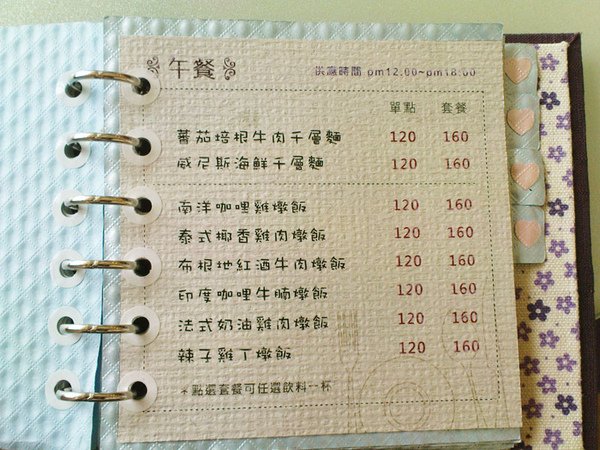 午餐 供應時間 pm12.00~pm18:00
單點 套餐
蕃茄培根牛肉千層麵 120 160
威尼斯海鮮千層麵 120 160
南洋咖哩雞燉飯 120 160
泰式椰香雞肉燉飯 120 160
布根地紅酒牛肉燉飯 120 160
印度咖哩牛腩燉飯 120 160
法式奶油雞肉燉飯 120 160
辣子雞丁燉飯 120 160
*點選套餐可任選飲料一杯